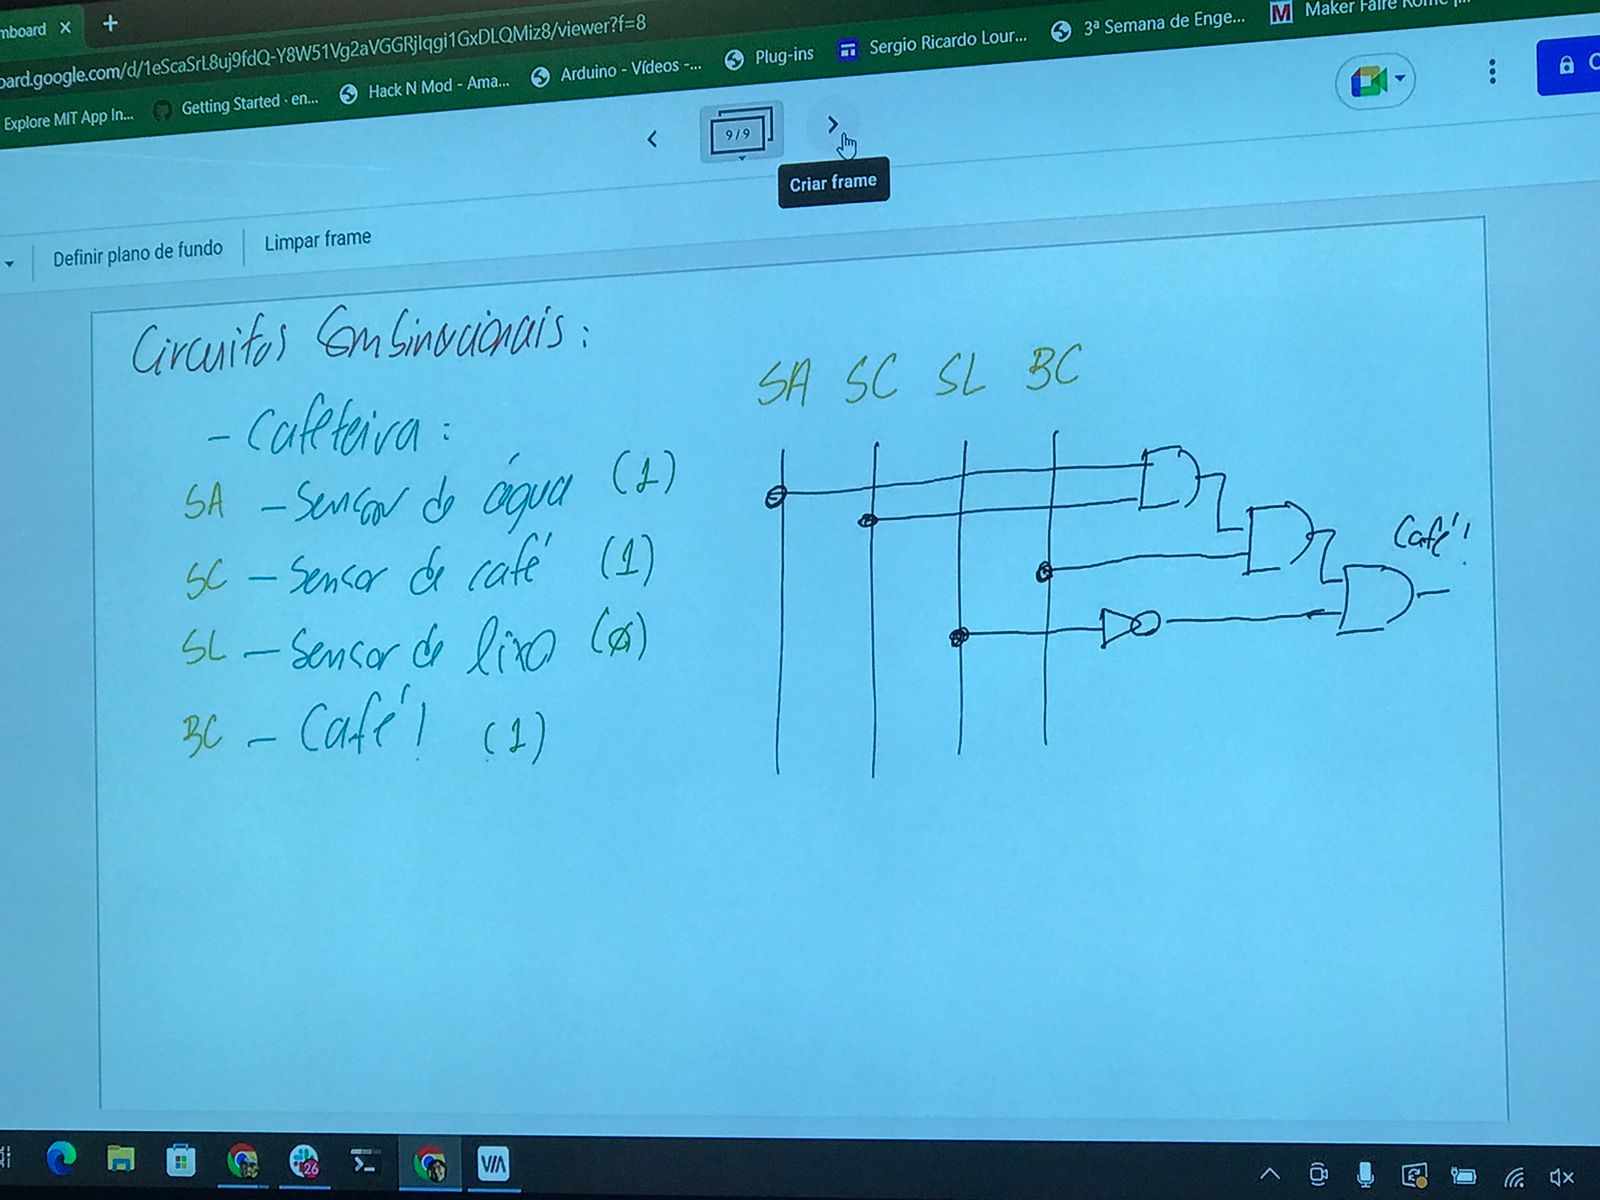 mboard × +
oard.google.com/d/1eScaSrL8uj9fdQ-Y8W51Vg2aVGGRjIqgi1GxDLQMiz8/viewer?f=8
Explore MIT App In...
Getting Started · en...
Hack N Mod - Ama...
Arduino - Vídeos -...
Plug-ins
Sergio Ricardo Lour...
3ª Semana de Enge...
Maker Faire Rome
9/9
Criar frame
Definir plano de fundo
Limpar frame
Circuitos Combinacionais:
- Cafeteira:
SA - Sensor de água (1)
SC - Sensor de café (1)
SL - Sensor de lixo (0)
BC - Café! (1)
SA SC SL BC
Café!
26
VIA